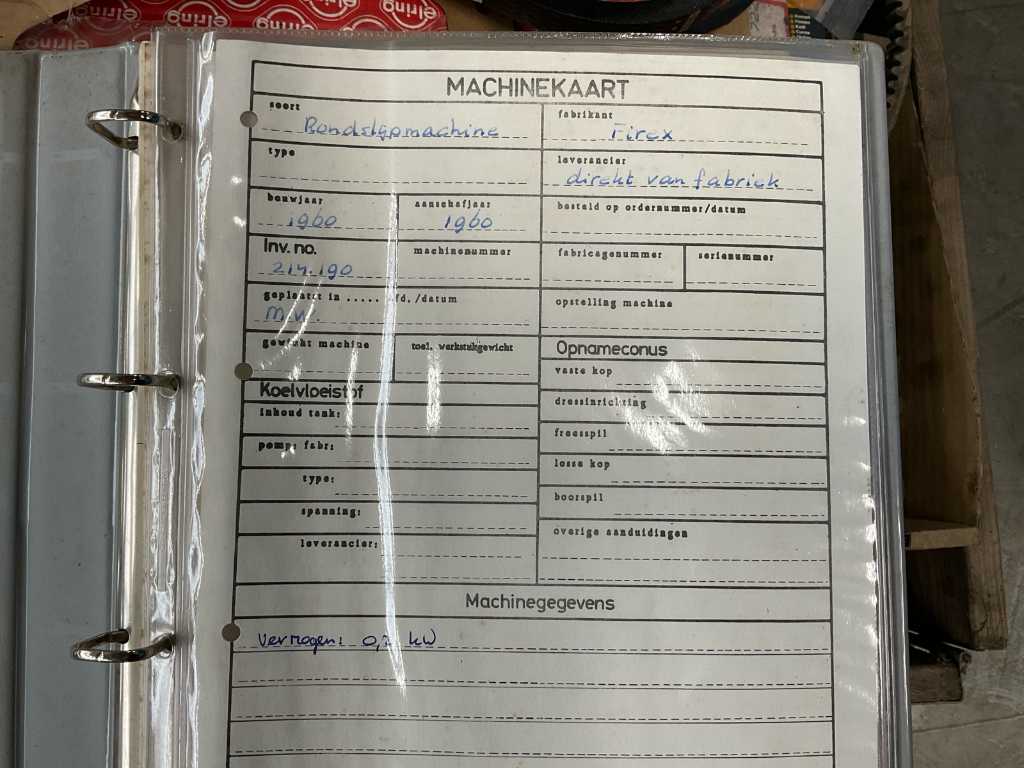 elring
elring
elring
elring
MACHINEKAART
soort
fabrikant
Bandslepmachine
Firex
type
leverancier
direkt van fabriek
bouwjaar
aanschafjaar
besteld op ordernummer/datum
1960
1960
Inv. no.
machinenummer
fabricagenummer
serienummer
214.190
geplaatst in ..... afd./datum
opstelling machine
M.W.
gewicht machine
toel. werkstukgewicht
Opnameconus
vaste kop
Koelvloeistof
dressinrichting
inhoud tank:
freesspil
pomp: fabr:
losse kop
type:
boorspil
spanning:
overige aanduidingen
leverancier:
Machinegegevens
Vermogen: 0, kW